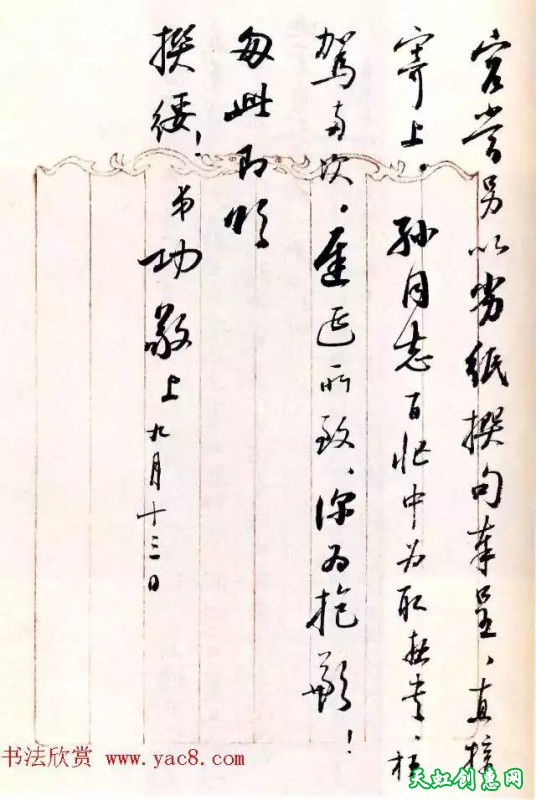 容当另以劣纸撰句奉呈、直接
寄上。孙同志百忙中为取拙书、枉
驾两次。迟延所致、深为抱歉！
匆此即颂
撰绥！
弟功敬上 九月十三日
书法欣赏 www.yac8.com
天虹创惠网